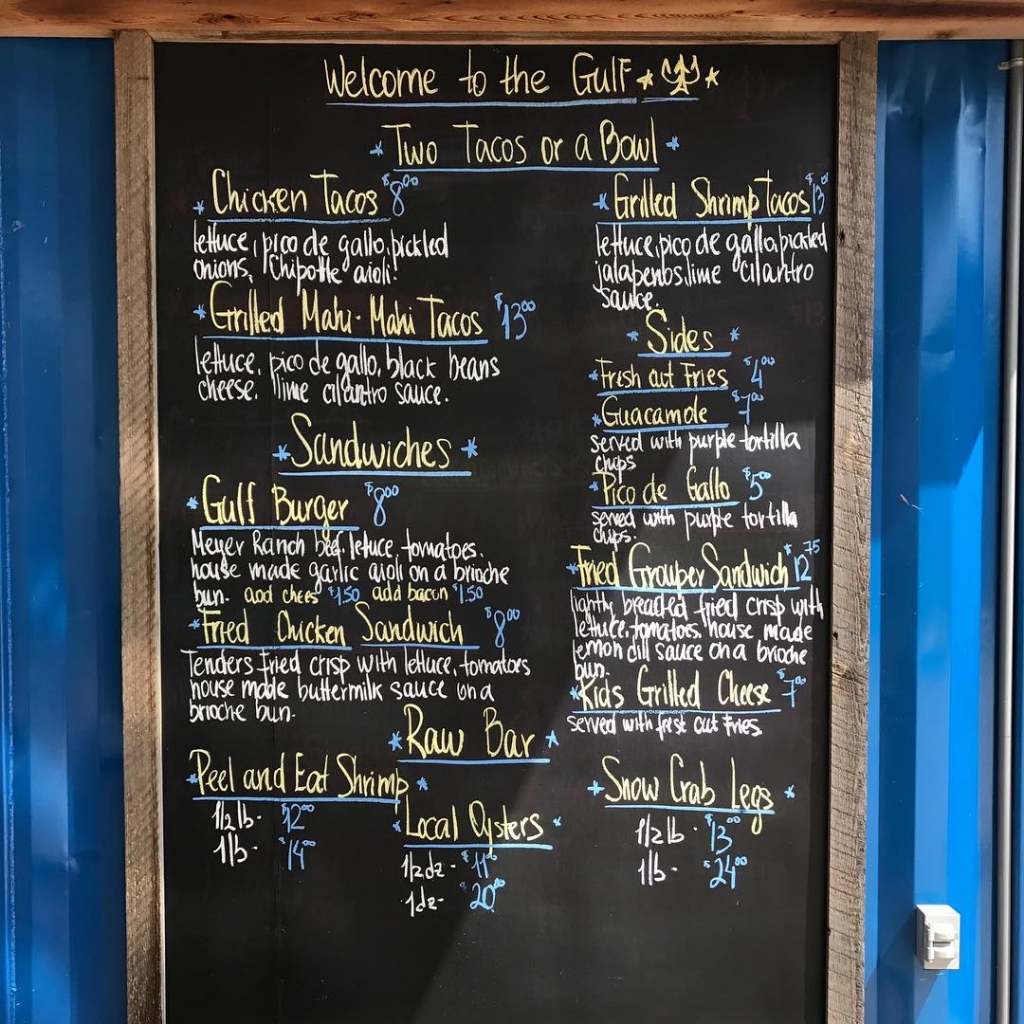 Welcome to the Gulf
Two Tacos or a Bowl
Chicken Tacos $8.00
lettuce, pico de gallo, pickled
onions, Chipotle aioli!
Grilled Mahi-Mahi Tacos $13.00
lettuce, pico de gallo, black beans
cheese, lime cilantro sauce.
Grilled Shrimp Tacos $13.00
lettuce, pico de gallo, pickled
jalapenos, lime cilantro
sauce.
Sandwiches
Gulf Burger $8.00
Meyer Ranch beef, letuce, tomatoes,
house made garlic aioli on a brioche
bun. add chees $1.50 add bacon $1.50
Fried Chicken Sandwich $8.00
Tenders fried crisp with lettuce, tomatoes
house made buttermilk sauce on a
brioche bun.
Sides
Fresh cut Fries $4.00
Guacamole $7.00
served with purple tortilla
chips
Pico de Gallo $5.00
served with purple tortilla
chips.
Fried Grouper Sandwich $12.75
lightly breaded fried crisp with
lettuce, tomatoes, house made
lemon dill sauce on a brioche
bun.
Kids Grilled Cheese $7.00
served with fresh cut fries.
Raw Bar
Peel and Eat Shrimp
1/2 lb - $12.00
1 lb - $14.00
Local Oysters
1/2 dz - $11.00
1 dz - $20.00
Snow Crab Legs
1/2 lb - $13.00
1 lb - $24.00